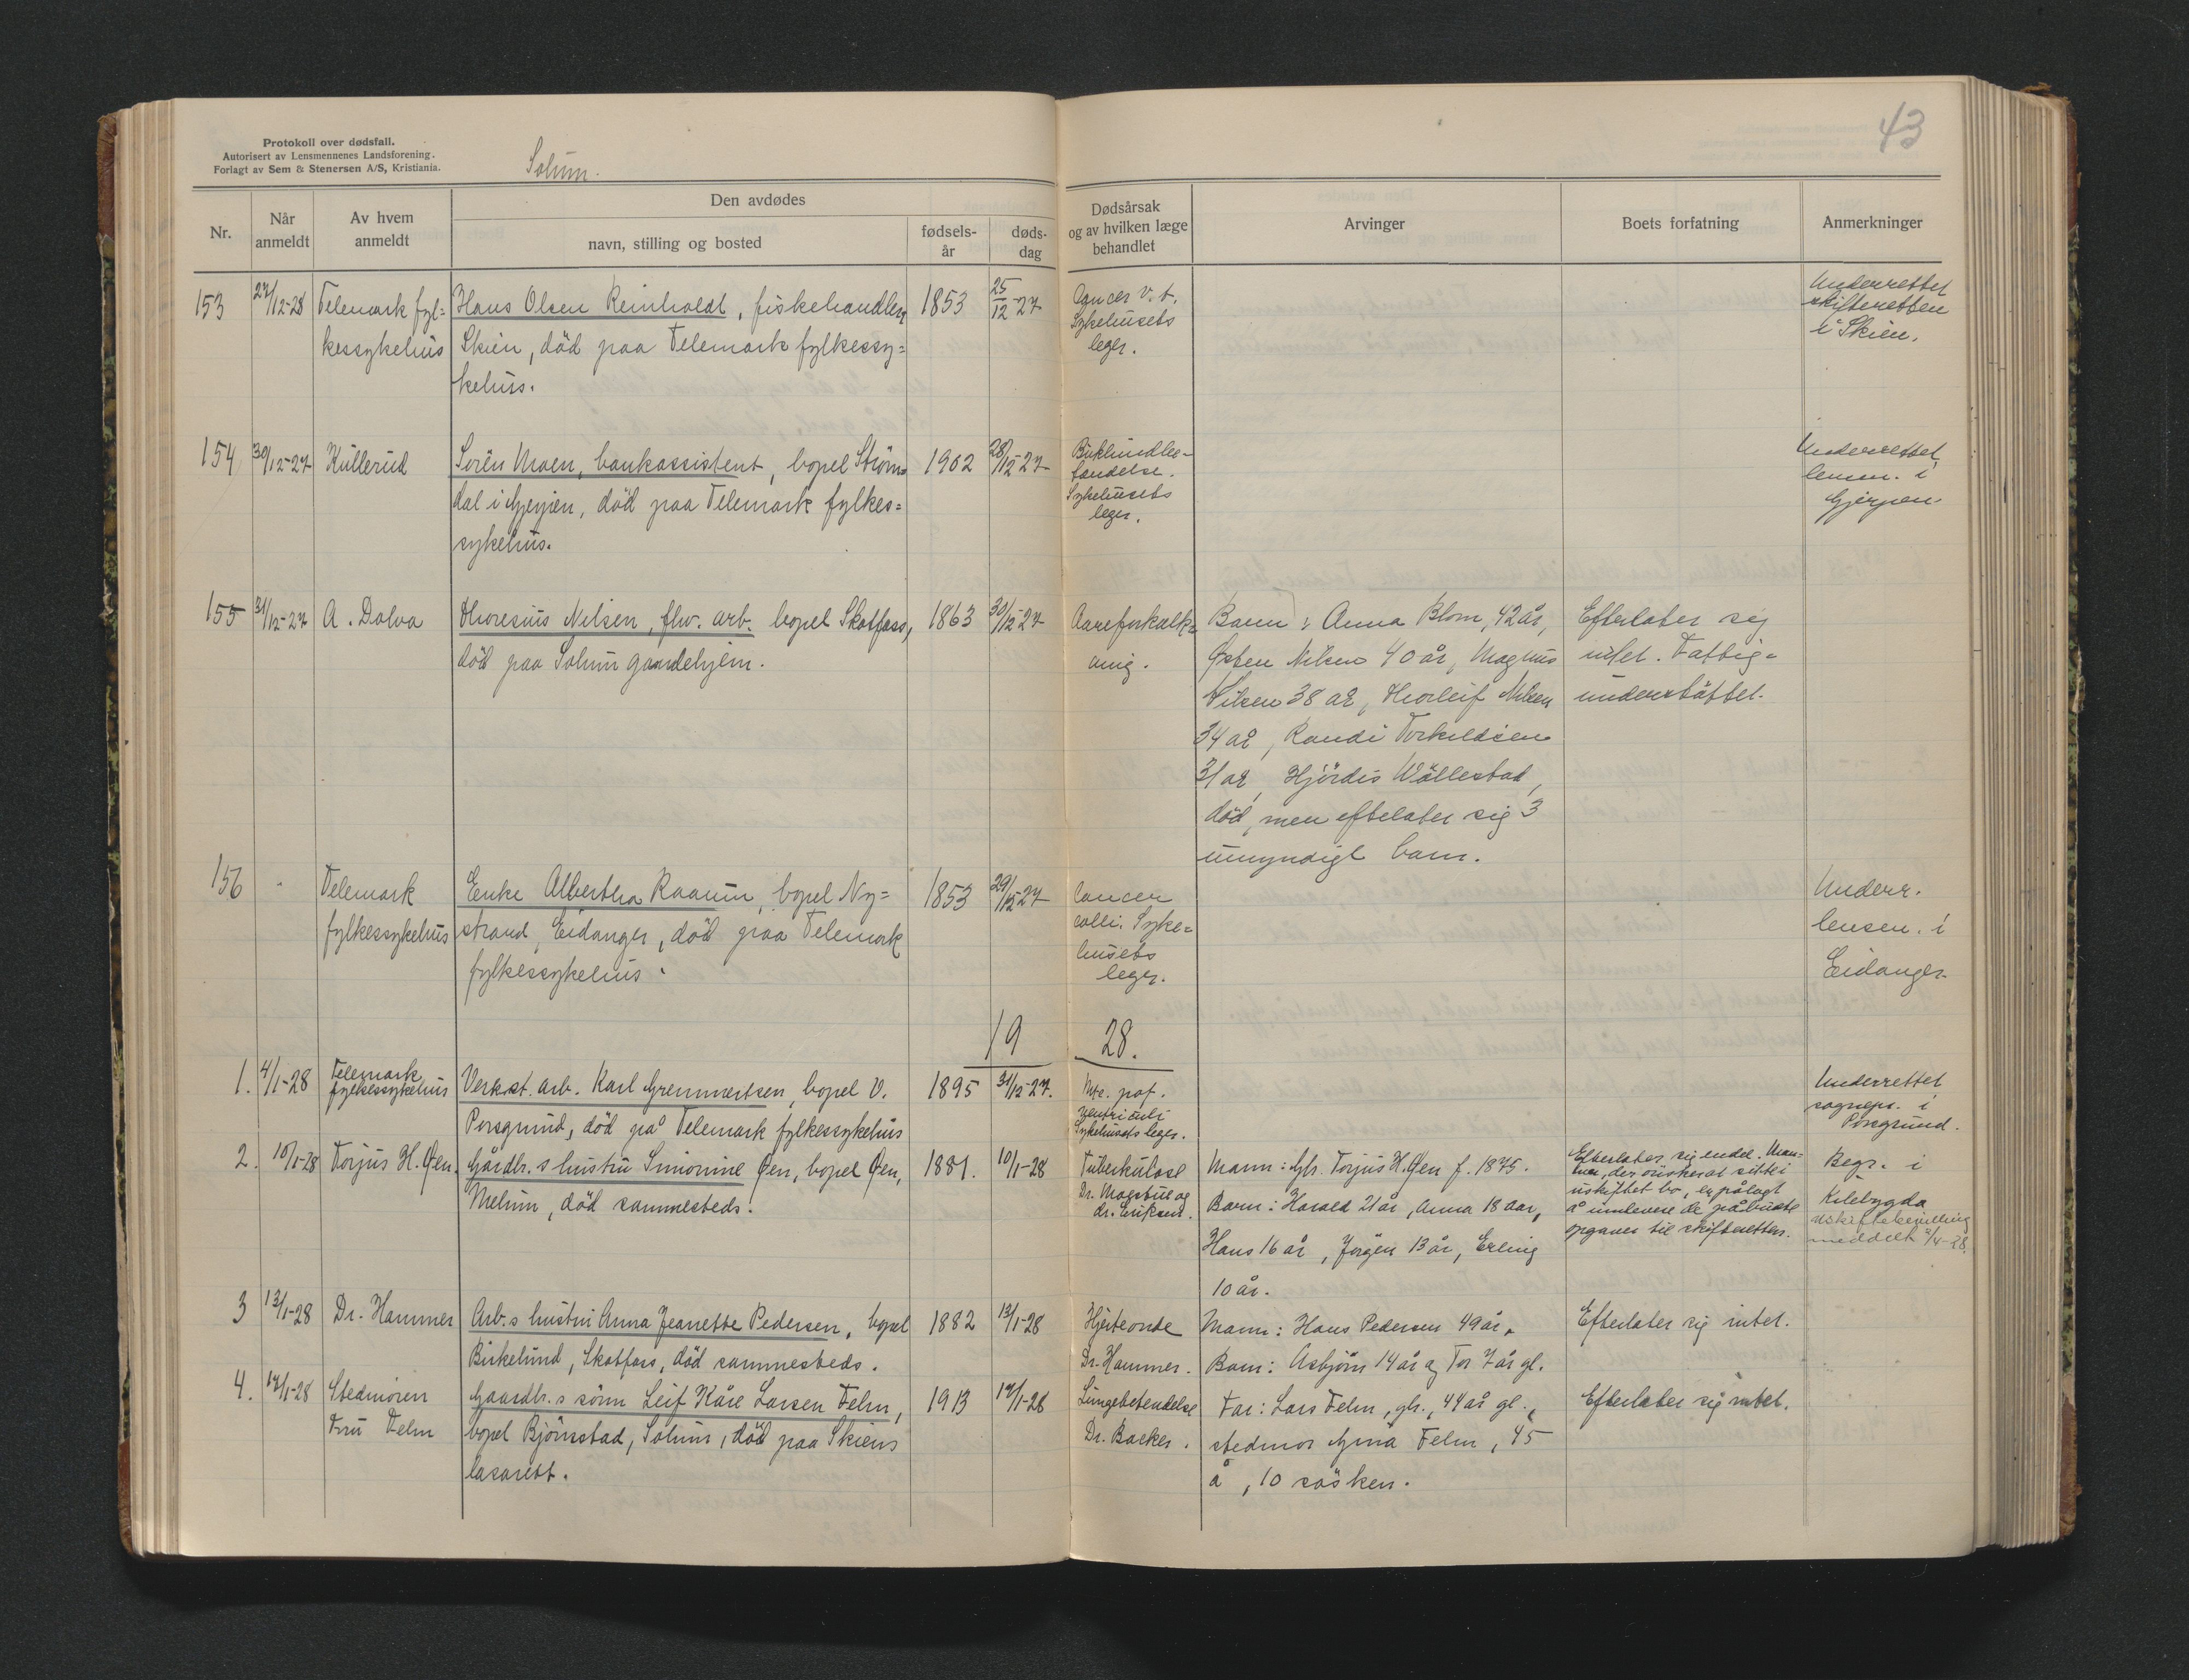 43
Protokoll over dødsfall.
Autorisert av Lensmennenes Landsforening.
Forlagt av Sem & Stenersen A/S, Kristiania.
Solum.
Nr.
Når anmeldt
Av hvem anmeldt
Den avdødes
navn, stilling og bosted
fødsels-år
døds-dag
Dødsårsak og av hvilken læge behandlet
Arvinger
Boets forfatning
Anmerkninger
153 27/12-28 Telemark fyl= Hans Olsen Reinholdt, fiskehandler, 1853 25/12-27 Cancer v. t. Underrettet
kessykehus Skien, död paa Telemark fylkessy= Sykehusets skifteretten
kehus. leger. i Skien.
154 30/12-27 Kullerud Sorën Moen, bankassistent, bopel Ström= 1902 28/12-27 Underrettet
dal i Gjerpen, död paa Telemark fylkes= Sykehusets lensm. i
sykehus. leger. Gjerpen.
155 31/12-27 A. Dalva Thoresius Nilsen, flw. arb. bopel Skotfoss, 1863 30/12-27 Aareforkalk= Barn: Anna Blom, 42 år, Efterlater sig
död paa Solum gamlehjem. ning. Østen Nilsen 40 år, Magnus intet. Fattig=
Nilsen 38 år, Thorleif Nilsen understöttet.
34 år, Randi Torkildsen
31 år, Hjördis Wöllestad,
död, men efterlater sig 3
umyndige barn.
156 " Telemark Enke Albertha Raanum, bopel Ny= 1853 29/12-27 Cancer Underr.
fylkessykehus strand, Eidanger, död paa Telemark colli. Syke= lensm. i
fylkessykehus. husets Eidanger.
leger.
19 28.
1. 4/1-28 Telemark fylkessykehus Verkst. arb. Karl Gremmertsen, bopel V. 1895 31/12-27. Ulc. perf. Underrettet
Porsgrund, död på Telemark fylkessykehus ventriculi sognepr. i
Sykehusets leger. Porsgrund.
2. 10/1-28 Torjus H. Øen. Gårdbr.s hustru Simonine Øen, bopel Øen, 1881. 10/1-28 Tuberkulose Mann: Gbr. Torjus H. Øen f. 1875. Efterlater sig endel. Man= Begr. i
Melum, död sammesteds. Dr. Magstue og Barn: Harald 21 år, Anna 18 aar, nen, der önsker at sitte i Kilebygda
dr. Eriksen. Hans 16 år, Jørgen 13 år, Erling uskiftet bo, er pålagt uskiftebevilling
10 år. å innlevere de påbudte meddelt 3/4-28.
opgaver til skifteretten.
3 13/1-28 Dr. Hammer Arb.s hustru Anna Jeanette Pedersen, bopel 1882 13/1-28 Hjerteonde Mann: Hans Pedersen 49 år. Efterlater sig intet.
Birkelund, Skotfoss, död sammesteds. Dr. Hammer. Barn: Asbjörn 14 år og Tor 7 år gl.
4. 17/1-28 Stedmoren Gaardbr.s sönn Leif Kåre Larsen Felm, 1913 17/1-28 Lungebetendelse Far: Lars Felm, gbr., 44 år gl., Efterlater sig intet.
Fru Felm bopel Björnstad, Solum, död paa Skiens Dr. Backer. stedmor Gina Felm, 45
lasarett. å, 10 söskén.